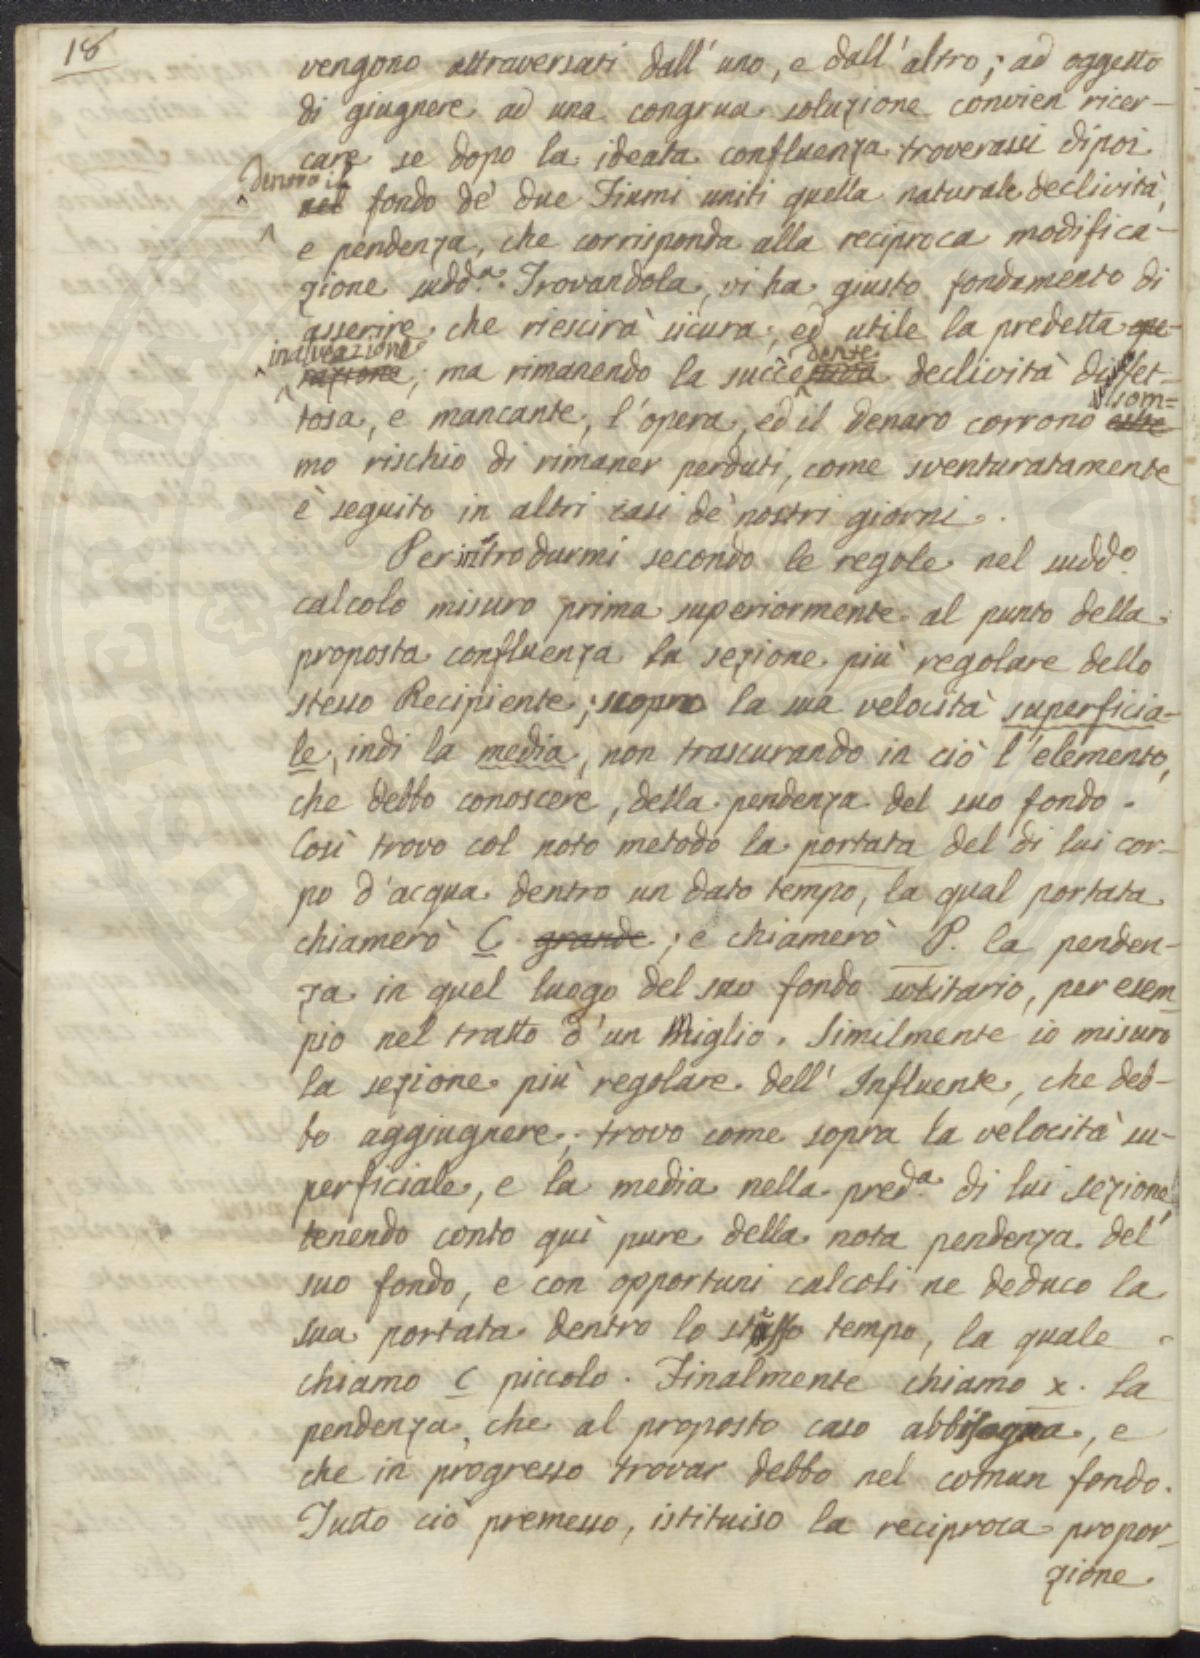 18
vengono attraversati dall' uno, e dall' altro; ad oggetto
di giugnere ad una congrua soluzione convien ricer-
care se dopo la ideata confluenza troverassi dipoi
dentro il
nel fondo de' due Fiumi uniti quella naturale declività,
e pendenza, che corrisponda alla reciproca modifica-
zione sudd.a. Trovandola, vi ha giusto fondamento di
asserire, che riescirà sicura, ed utile la predetta ope-
inalveazione
razione; ma rimanendo la succe declività diffet-
dente
tosa, e mancante, l'opera, ed il denaro corrono estre-
som=
mo rischio di rimaner perduti, come sventuratamente
è seguito in altri casi de' nostri giorni.
Per introdurmi secondo le regole nel sudd.o
calcolo misuro prima superiormente al punto della
proposta confluenza la sezione più regolare dello
stesso Recipiente; scopro la sua velocità superficia-
le, indi la media, non trascurando in ciò l'elemento,
che debbo conoscere, della pendenza del suo fondo.
Così trovo col noto metodo la portata del di lui cor-
po d'acqua dentro un dato tempo, la qual portata
chiamerò C grande; e chiamerò P. la penden-
za in quel luogo del suo fondo solitario, per esem
pio nel tratto d'un Miglio. Similmente io misuro
la sezione più regolare dell' Influente, che deb-
bo aggiugnere; trovo come sopra la velocità su-
perficiale, e la media nella pred.a di lui sezione,
tenendo conto quì pure della nota pendenza del
suo fondo, e con opportuni calcoli ne deduco la
sua portata dentro lo stesso tempo, la quale
chiamo c piccolo. Finalmente chiamo x. la
pendenza, che al proposto caso abbisogna, e
che in progresso trovar debbo nel comun fondo.
Tutto ciò premesso, istituiso la reciproca propor-
zione